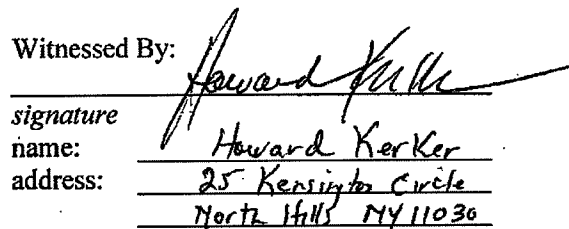 Witnessed By: Howard
signature
name: Howard Kerker
address: 25 Kensington Circle
North Hills NY 11030